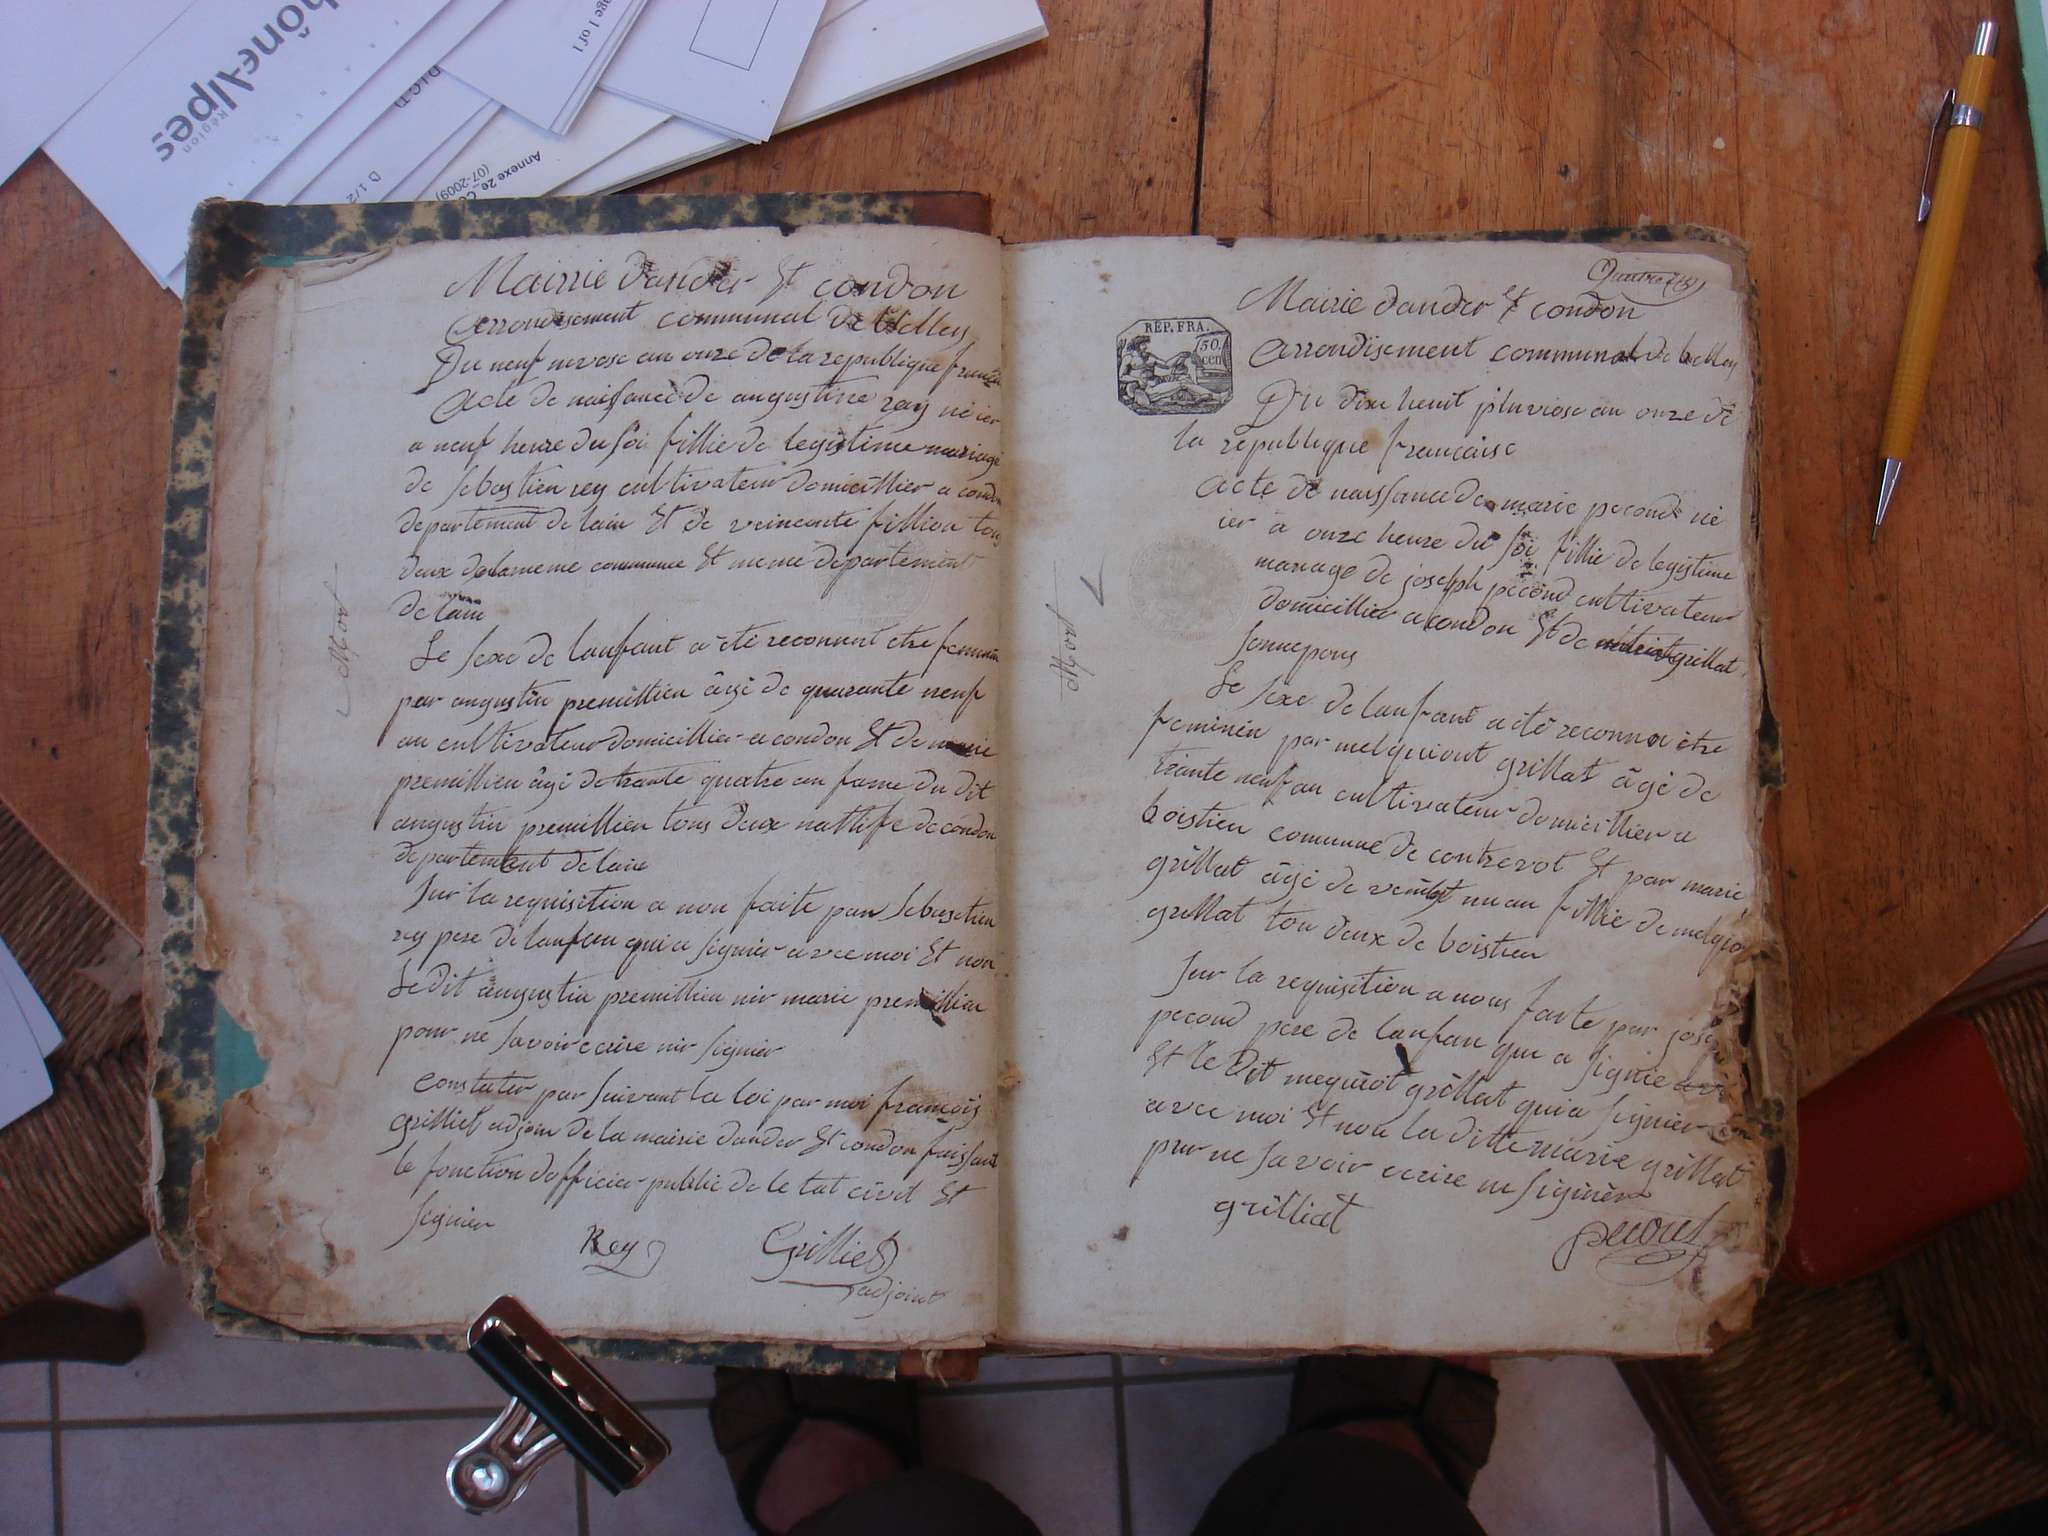 hôneAlpes
Région
Page 1 of 1
D I C T
D 1/2
Annexe 2e_ C
(07-2009)
Mairrie dander et condon
arrondisement communal de belley
Du neuf nivose an onze de la republique francai
acte de naissance de augustine ray né ier
a neuf heure du soi fillie de legistime mariage
de sebastien rey cultivateur domicillier a condon
departement de lain et de veincente fillion tous
deux de lameme commune et meme departement
de lain
Le sexe de lanfant a été reconnut etre feminin
par augustin premillieu âgé de quarante neuf
an cultivateur domicillier a condon et de marie
premillieu âgé de trante quatre an fame du dit
augustin premillieu tous deux nattife de condon
departement de lain
Sur la requisition a nou faite par sebastien
rey pere de lanfan qui a signier avec moi et non
Le dit augustin premillieu nir marie premillieu
pour ne savoir ecrire nir signier
constater par suivant la loi par moi françois
grilliet adjoin de la mairie dander et condon faissant
le fonction dofficier public de le tat civil et
signier
Rey
Grilliet
adjoint
Mort
Mairie dander et condon
REP. FRA.
50.
cen
arrondisement communal de belley
Du dixe heuit pluviose an onze de
la republique française
acte de naissance de marie pecond né
ier a onze heure du soi fillie de legistime
mariage de joseph pecond cultivateur
domicillier a condon et de grillat
Le sexe de lanfant a été reconnu être
feminin par melquiont grillat âgé de
trante neuf an cultivateur domicillier a
boistieu commune de contrevot et par marie
grillat âgé de veingt un an fillie de melqio
grillat tou deux de boistieu
Sur la requisition a nous faite par josep
pecond pere de lanfan qui a signie
et le dit mequiot grillat qui a signier
avec moi et non la ditte marie grillat
pur ne savoir ecrire ni signier
grilliat
pecout
Mort